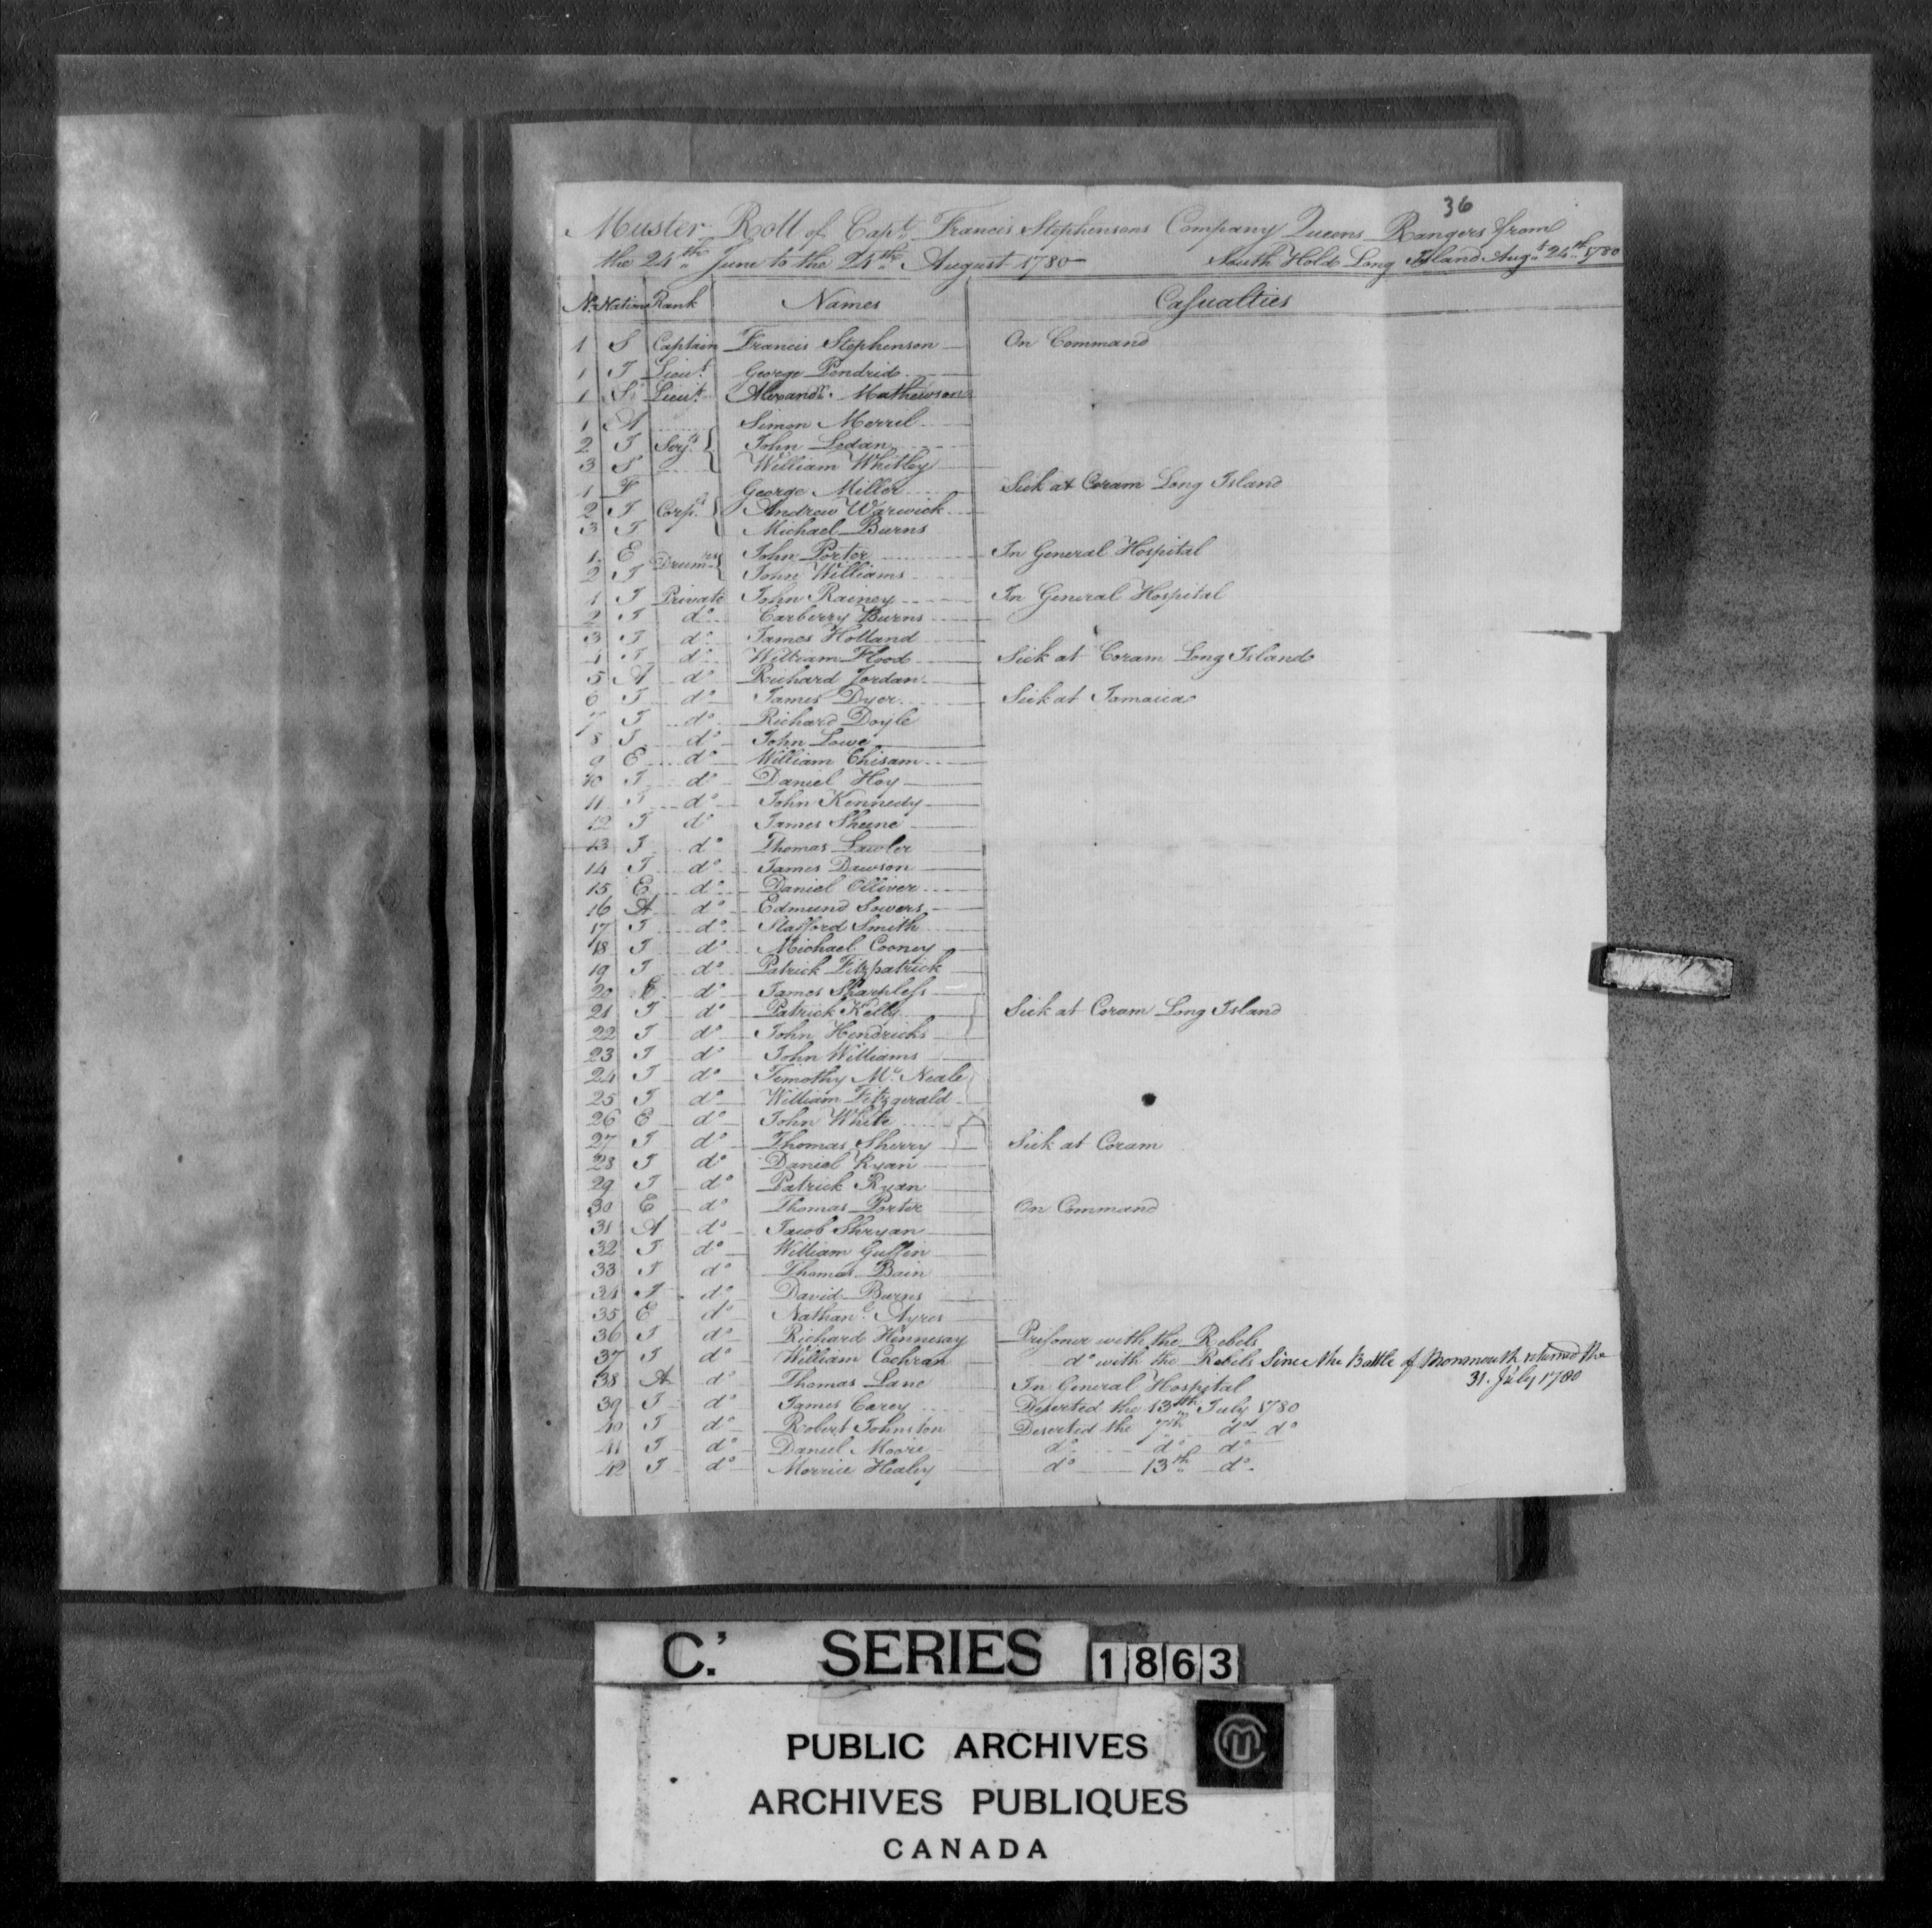 36
Muster Roll of Capt. Francis Stephensons Company Queens Rangers from
the 24th June to the 24th August 1780 South Hold Long Island Augt 24th 1780
No. Nations Rank Names Casualties
1 S Captain Francis Stephenson On Command
1 I Lieut. George Pendrid
1 S Lieut. Alexandr. Mathewson
1 A Simon Merrel
2 I Serjts John Ledan
3 S William Whitley
1 F George Miller Sick at Coram Long Island
2 I Corpls Andrew Warwick
3 I Michael Burns
1 E Drumrs John Porter In General Hospital
2 I John Williams
1 I Private John Rainey In General Hospital
2 I do Carberry Burns
3 I do James Holland
4 I do William Flood Sick at Coram Long Island
5 A do Richard Jordan
6 I do James Dyer Sick at Jamaica
7 I do Richard Doyle
8 I do John Lowe
9 E do William Chisam
10 I do Daniel Hoy
11 I do John Kennedy
12 I do James Sheene
13 I do Thomas Lawler
14 I do James Dawson
15 E do Daniel Olliver
16 A do Edmund Sowers
17 I do Stafford Smith
18 I do Michael Cooney
19 I do Patrick Fitzpatrick
20 E do James Sharpless
21 I do Patrick Kelly Sick at Coram Long Island
22 I do John Hendricks
23 I do John Williams
24 I do Timothy Mc Neale
25 I do William Fitzgerald
26 E do John White
27 I do Thomas Sherry Sick at Coram
28 I do Daniel Ryan
29 I do Patrick Ryan
30 E do Thomas Porter On Command
31 A do Jacob Shryan
32 I do William Guffin
33 I do Thomas Bain
34 I do David Burns
35 E do Nathanl. Ayres
36 I do Richard Hennesay Prisoner with the Rebels
37 I do William Cochran do with the Rebels Since the Battle of Monmouth returned the
31. July 1780
38 A do Thomas Lane In General Hospital
39 I do James Carey Deserted the 13th July 1780
40 I do Robert Johnston Deserted the 7th do do
41 I do Daniel Moore do do do
42 I do Morrice Healey do 13th do
C.' SERIES 1863
PUBLIC ARCHIVES
ARCHIVES PUBLIQUES
CANADA